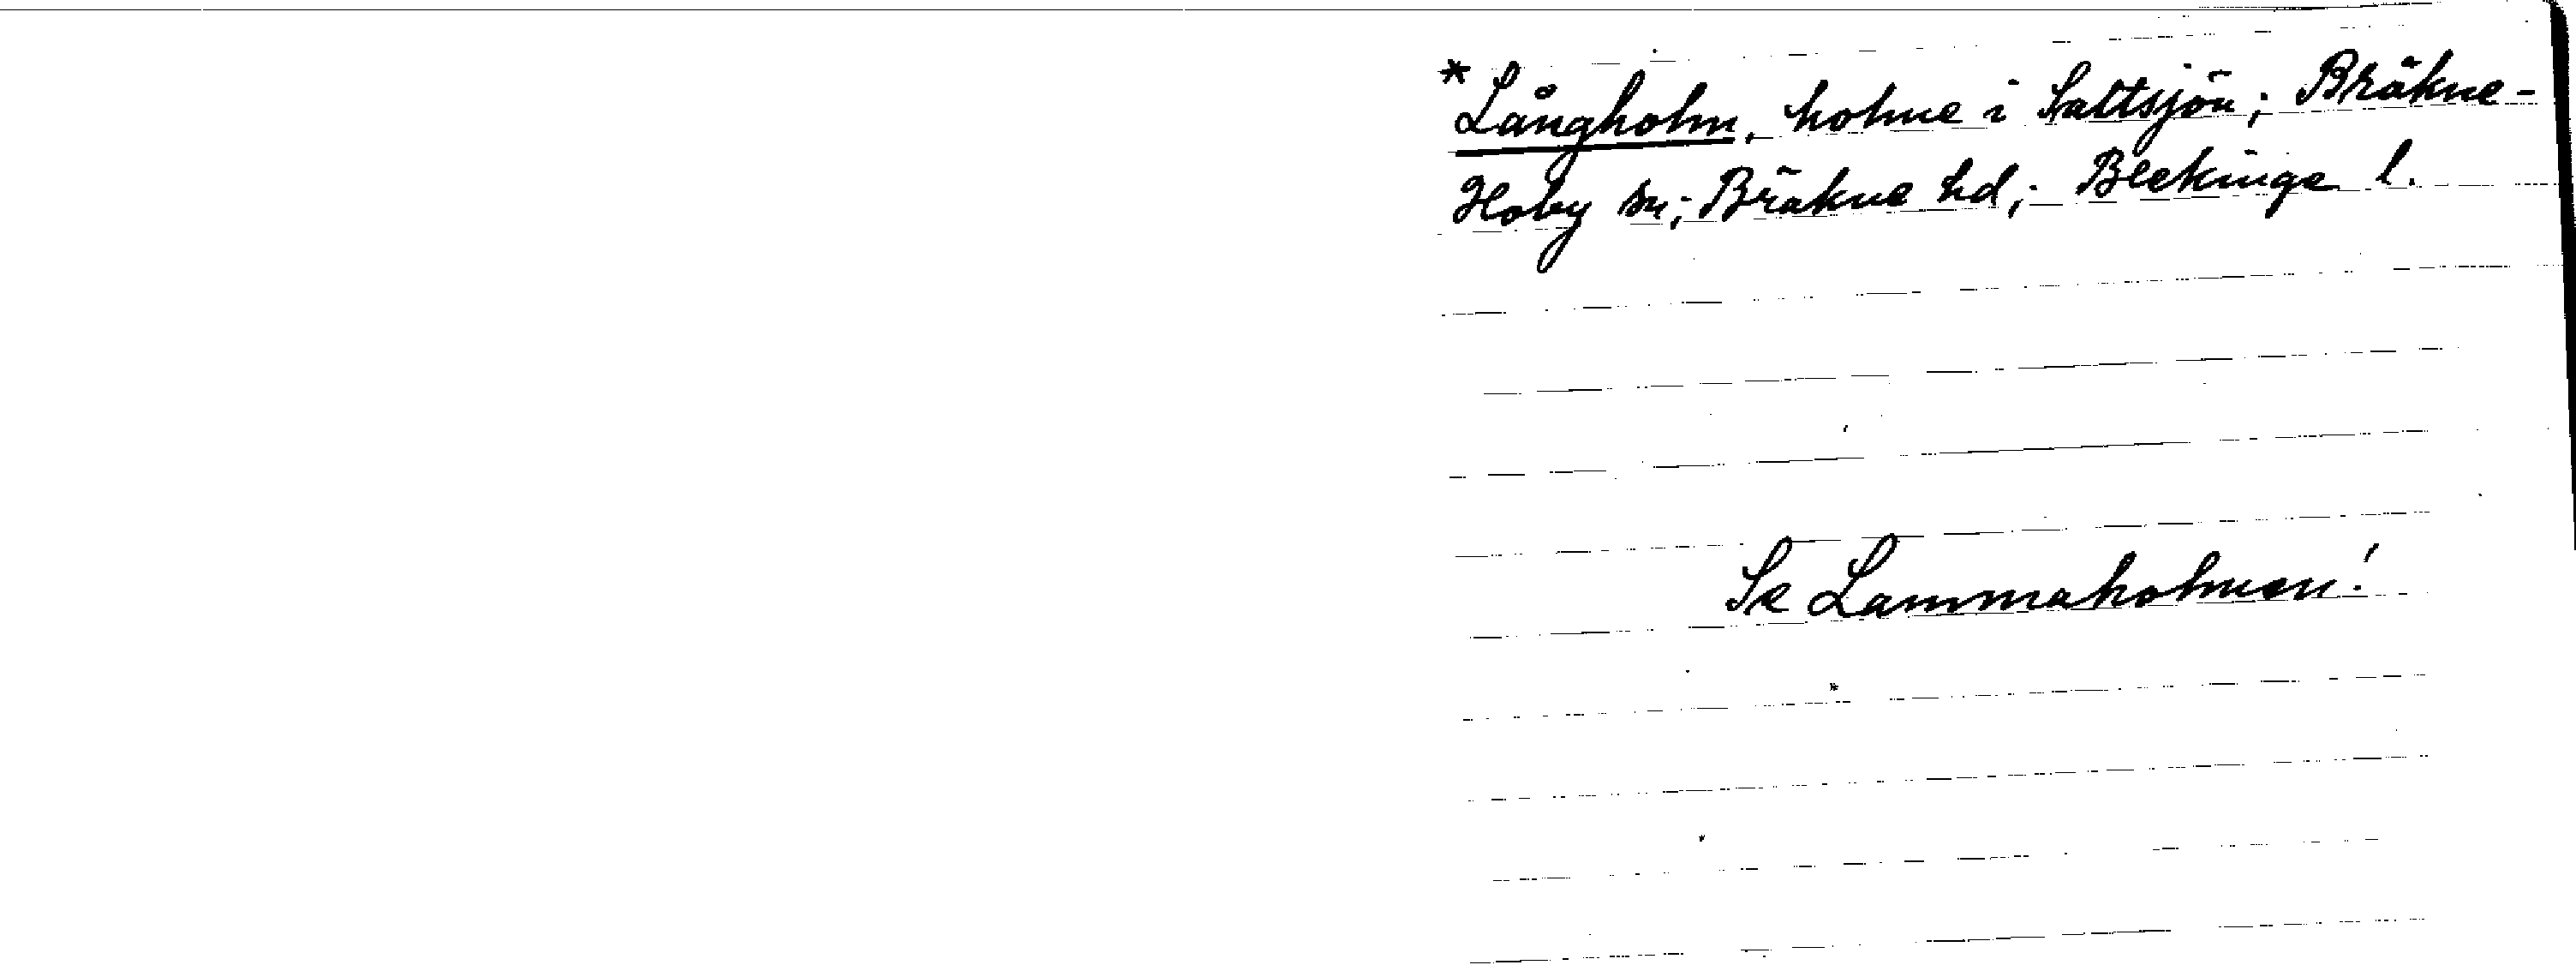 *Långholm, holme i Saltsjön; Bräkne-
Hoby sn; Bräkne hd; Blekinge l.
Se Lammaholmen!